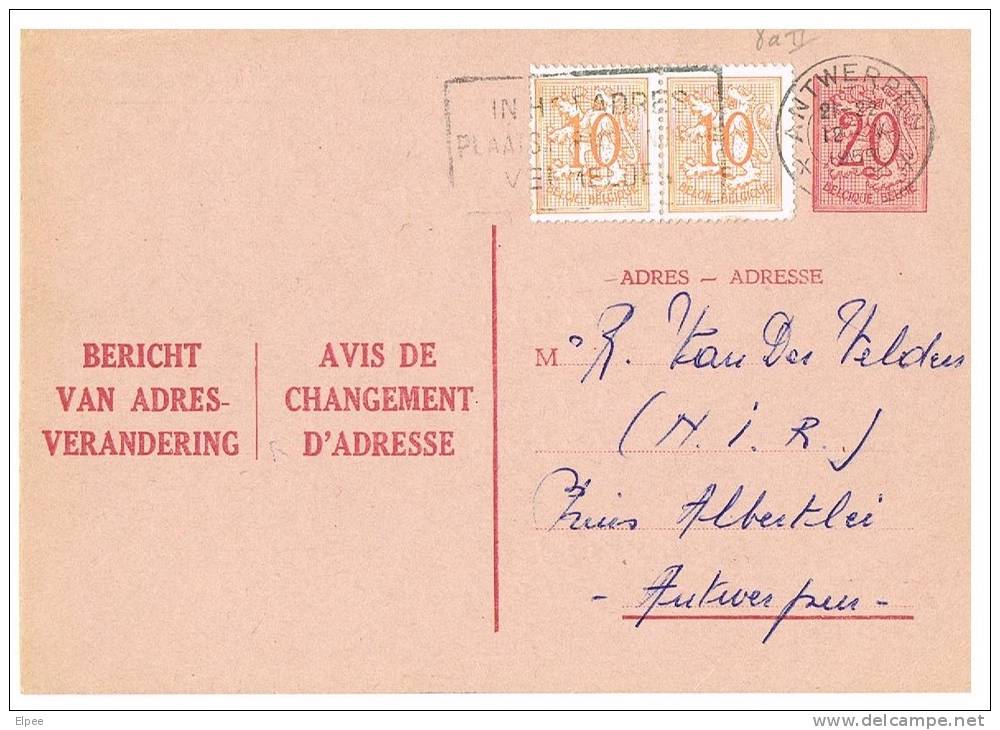 8a II
IN HET ADRES
PLAATS
VERMELDEN
10 10
BELGIE BELGIQUE BELGIE BELGIQUE
ANTWERPEN
21-22
12
20
BELGIQUE BELGIE
ADRES — ADRESSE
M R. Van Der Velden
(N. I. R.)
Prins Albertlei
- Antwerpen -
BERICHT
VAN ADRES-
VERANDERING
AVIS DE
CHANGEMENT
D'ADRESSE
Elpee
delcampe.net